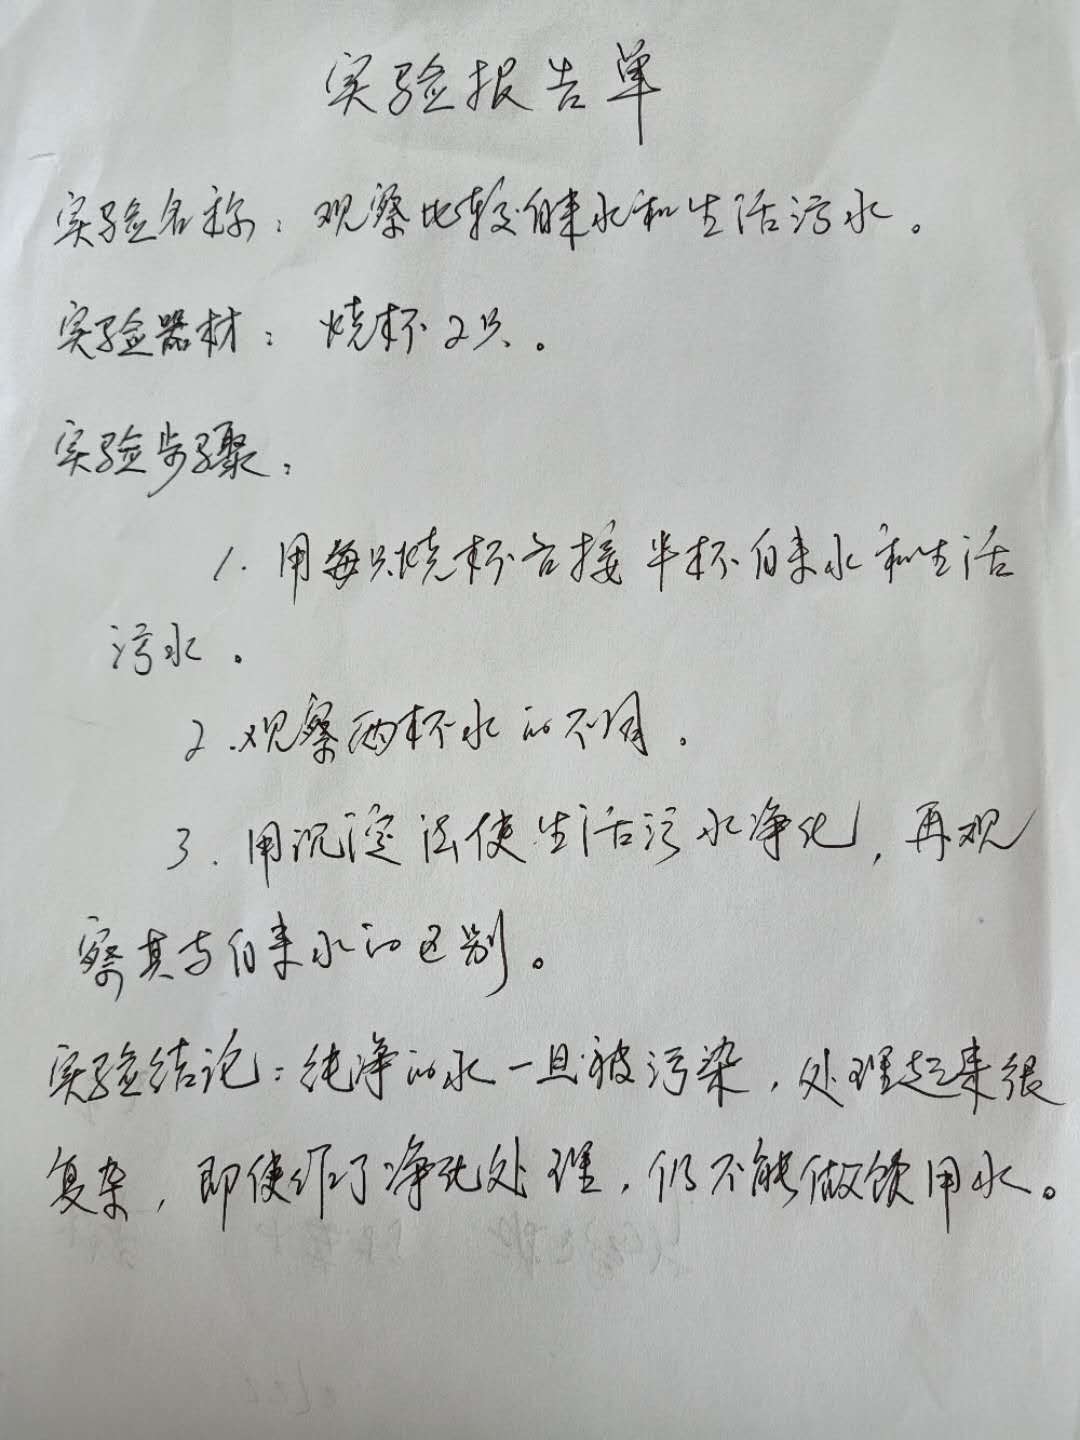 实验报告单
实验名称：观察比较自来水和生活污水。
实验器材：烧杯2只。
实验步骤：
1.用每只烧杯各接半杯自来水和生活
污水。
2.观察两杯水的不同.
3.用沉淀法使生活污水净化,再观
察其与自来水的区别。
实验结论：纯净的水一旦被污染,处理起来很
复杂,即使作了净化处理,仍不能做饮用水。